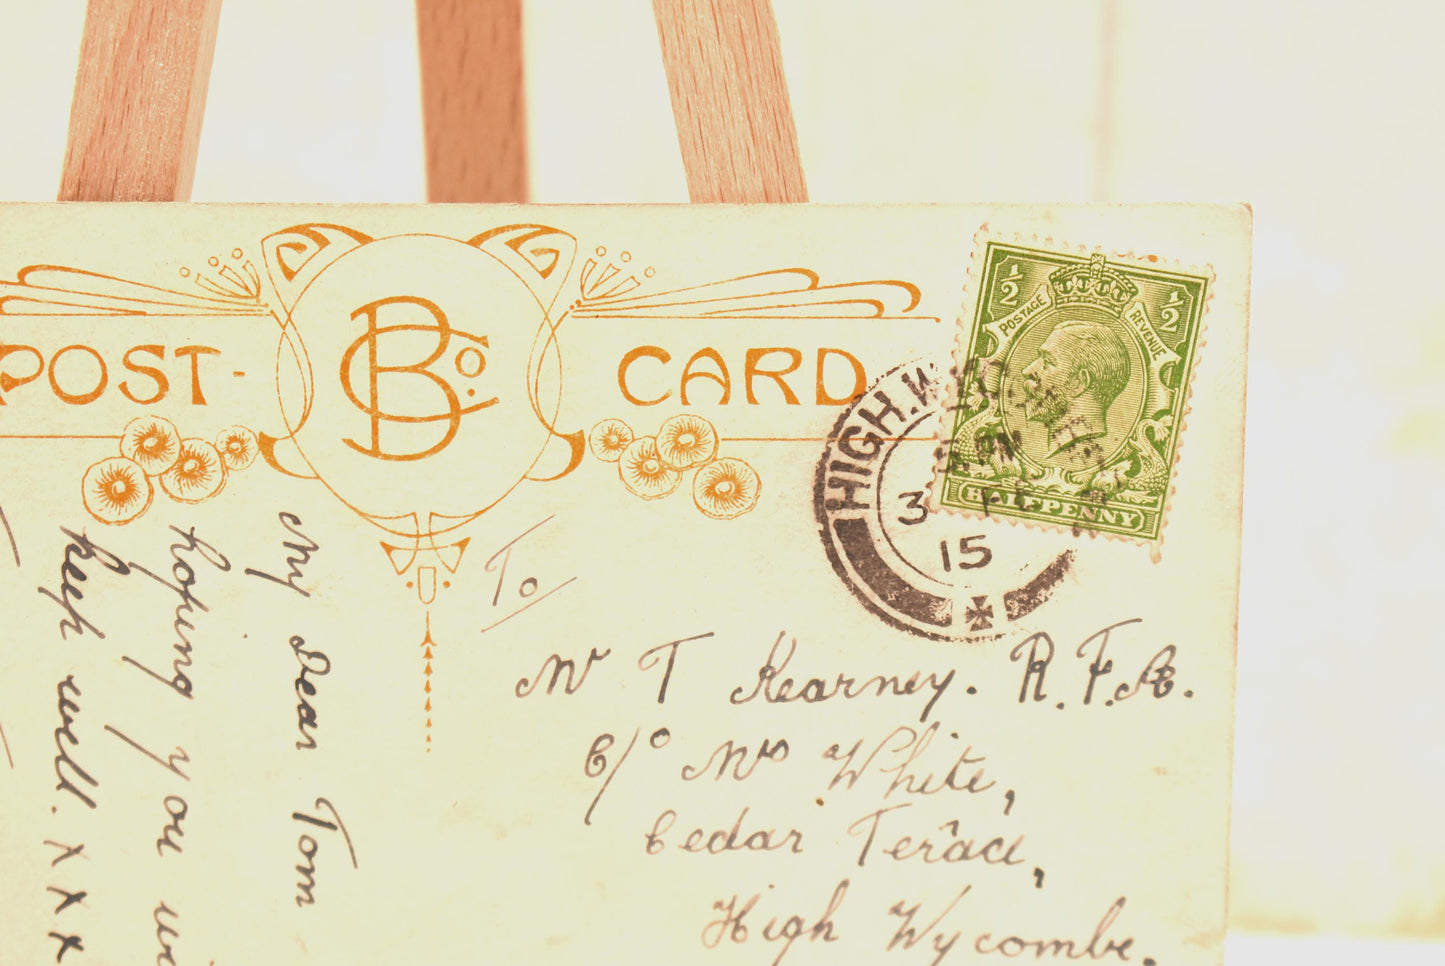 POST- BCo. CARD
1/2 1/2
POSTAGE REVENUE
HALFPENNY
HIGH.WYCOMBE
PM
3
15
To
Mr T Kearney. R.F.A.
C/o Mrs White,
Cedar Terace,
High Wycombe.
My Dear Tom
hoping you
keep well. x x x